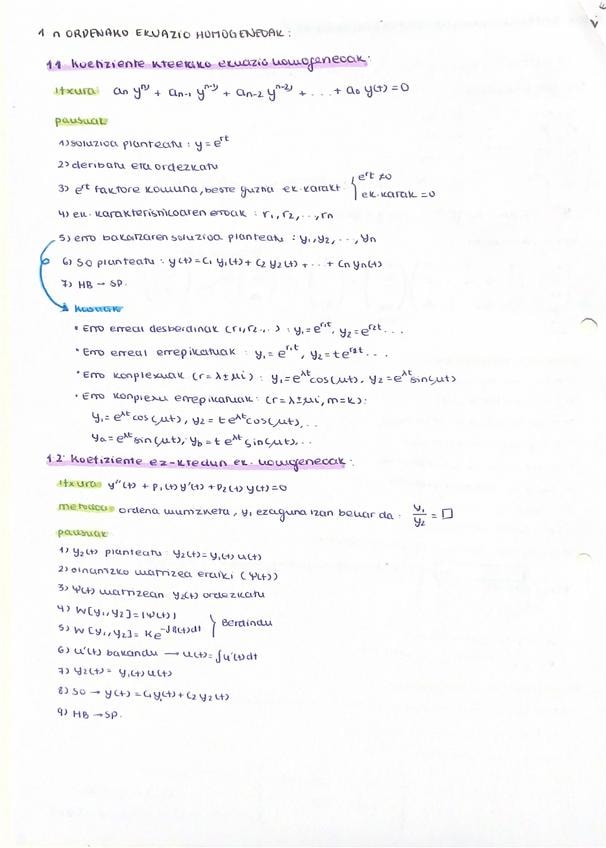 1 n ORDENAKO EKUAZIO HOMOGENEOAK:
1.1 Koefiziente kteetako ekuazio homogeneoak:
Itxura: aₙ y⁽ⁿ⁾ + aₙ₋₁ y⁽ⁿ⁻¹⁾ + aₙ₋₂ y⁽ⁿ⁻²⁾ + ... + a₀ y(t) = 0
pausuak
1) soluzioa planteatu: y = e^rt
2) deribatu eta ordezkatu
3) e^rt faktore komuna, beste guztia ek. karakt. { e^rt ≠ 0
ek. karak = 0
4) ek. karakteristikoaren erroak: r₁, r₂, ..., rₙ
5) erro bakoitzaren soluzioa planteatu: y₁, y₂, ..., yₙ
6) SO planteatu: y(t) = C₁ y₁(t) + C₂ y₂(t) + ... + Cₙ yₙ(t)
7) HB → SP.
kasuak
• Erro erreal desberdinak (r₁, r₂...): y₁ = e^r₁t, y₂ = e^r₂t ...
• Erro erreal errepikatuak: y₁ = e^r₁t, y₂ = t e^r₂t ...
• Erro konplexuak (r = λ ± μi): y₁ = e^λt cos(μt), y₂ = e^λt sin(μt)
• Erro konplexu errepikatuak: (r = λ ± μi, m = k):
y₁ = e^λt cos(μt), y₂ = t e^λt cos(μt), ..
ya = e^λt sin(μt), yb = t e^λt sin(μt), ..
1.2 Koefiziente ez-ktedun ek. homogeneoak:
Itxura: y''(t) + p₁(t) y'(t) + p₂(t) y(t) = 0
metodoa: ordena murrizketa, y₁ ezaguna izan behar da: y₁/y₂ = □
pausuak
1) y₂(t) planteatu: y₂(t) = y₁(t) u(t)
2) oinarrizko matrizea eraiki (Ψ(t))
3) Ψ(t) matrizean y₂(t) ordezkatu
4) W[y₁, y₂] = |Ψ(t)|
5) W[y₁, y₂] = K e^-∫P₁(t)dt } Berdindu
6) u'(t) bakandu → u(t) = ∫u'(t)dt
7) y₂(t) = y₁(t) u(t)
8) SO → y(t) = C₁ y₁(t) + C₂ y₂(t)
9) HB → SP.